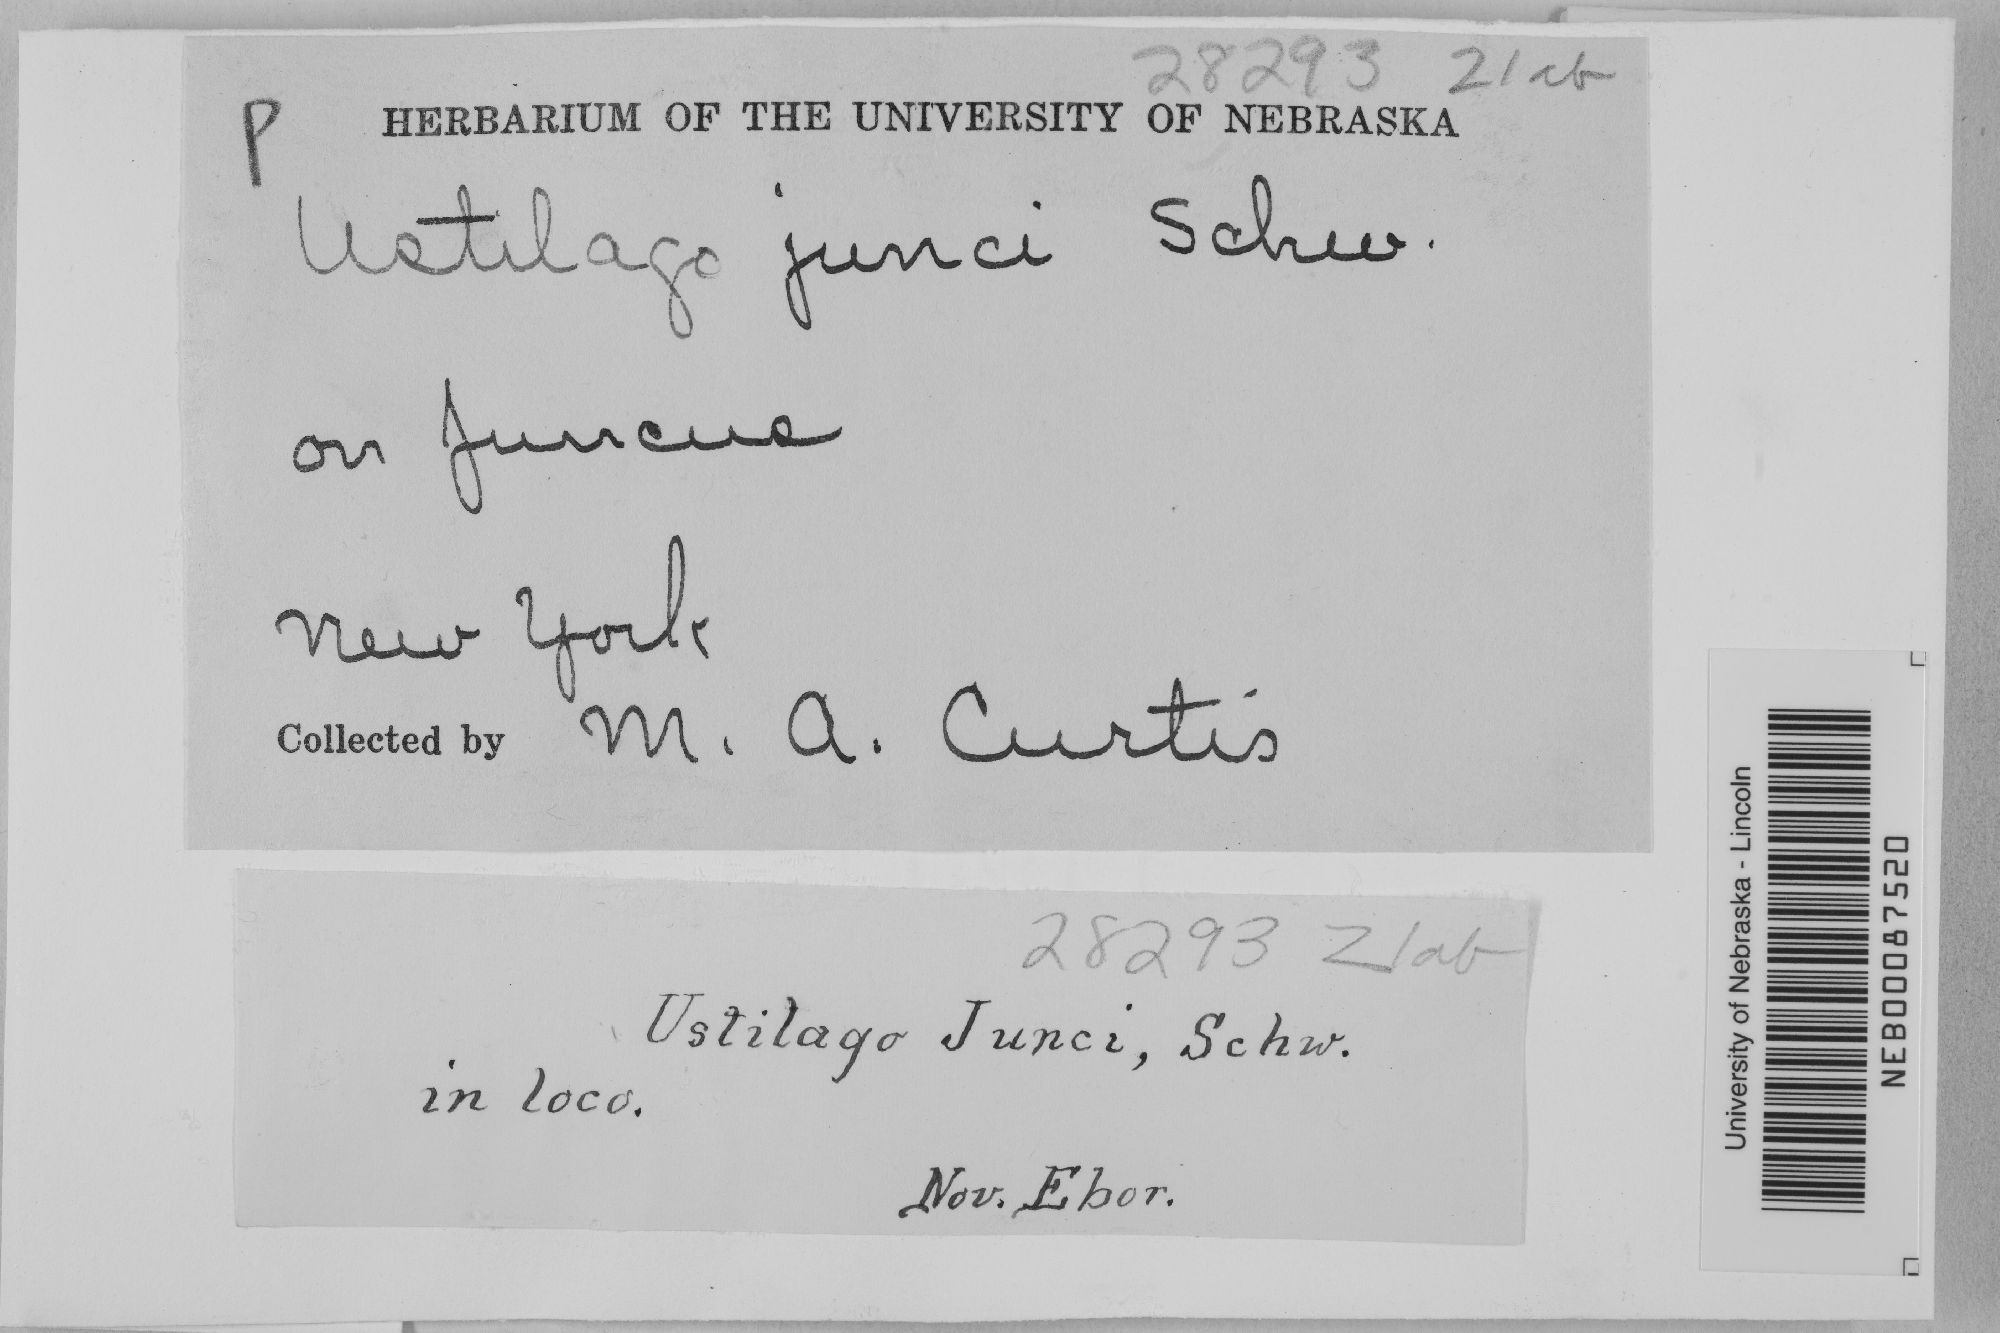 28293 21ab
P HERBARIUM OF THE UNIVERSITY OF NEBRASKA
Ustilago junci Schw.
on Juncus
New York
Collected by M. A. Curtis
28293 21ab
Ustilago Junci, Schw.
in loco.
Nov. Ebor.
University of Nebraska - Lincoln
NEB0087520